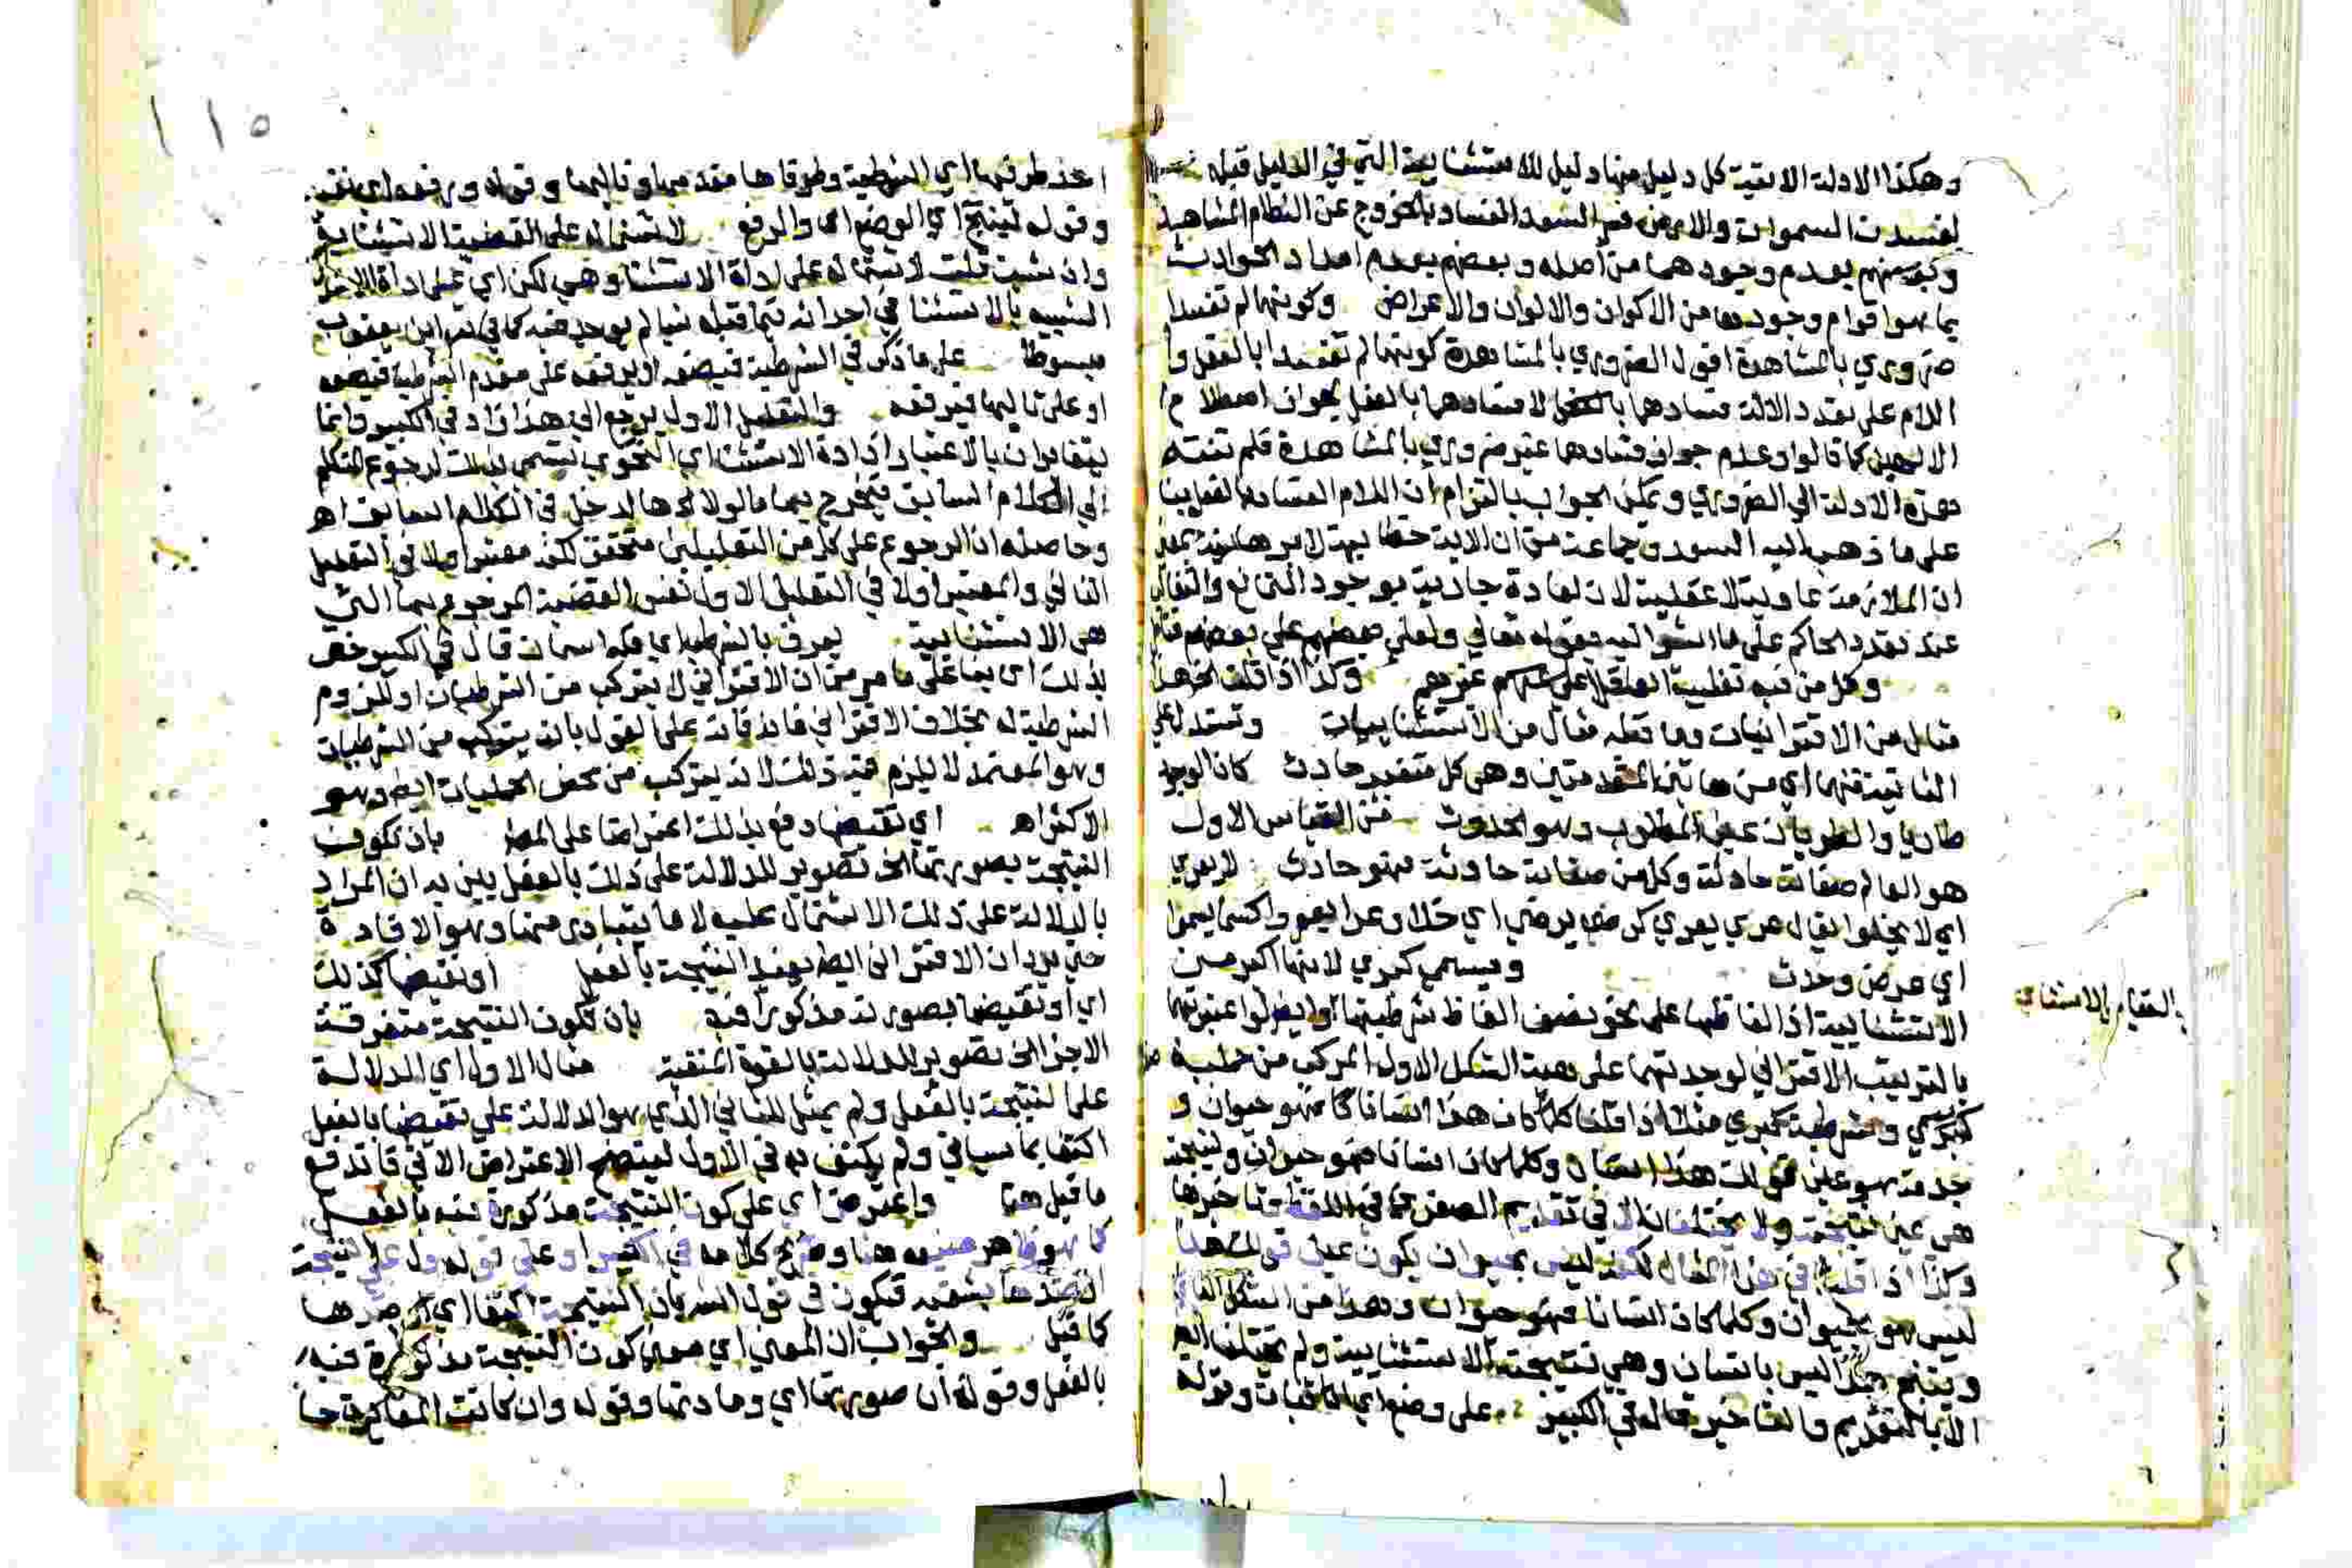 وهكذا الادلة الاتية كل دليل منها دليل للاستثنايية التي في الدليل قبله
لفسدت السموات والارض فسر السعد الفساد بالخروج عن النظام المشاهد
وبعضهم بعدم وجودهما من اصله وبعضهم بعدم امداد الحوادث
بما بهوا قوام وجودها من الاكوان والالوان والاعراض وكونهما لم تفسدا
ضروري بالمشاهدة اقول الضروري بالمشاهدة كونهما لم تفسدا بالفعل و
اللازم على تعدد الالهة فسادهما لا فسادهما بالفعل لجواز اصطلاح
الالهين كما قالوا وعدم جواز فسادهما غير ضروري بالمشاهدة فلم تنته
هذه الادلة الي الضروري ويمكن الجواب بالتزام ان اللازم الفساد
على ما ذهب اليه السعد وجماعة من ان الاية خطابية لا برهانية بمعنى
ان الملازمة عادية لا عقلية لان العادة جارية بوجود التمانع والتغالب
عند تعدد الحاكم على ما اشير اليه بقوله تعالي ولعلى بعضهم علي بعض
وكل من فيه تغليب العاقل على غيرهم وكذا اذا قلت الخ هذا
مثال من الاقترانيات وما قبله مثال من الاستثناييات
الناتية فهما اي من هاتين المقدمتين وهي كل متغير حادث كان الوجود
طاريا والطريان عين المطلوب وهو الحدوث فمن القياس الاول
هو العالم صفاته حادثة وكل من صفاته حادثة فهو حادث لا يعرى
اي لا يخلوا يقال عري يعري كرضي يرضي اي خلا وعرا يعرو كسما يسموا
اي عرض وحدث ويسمي كبري لانها اكبر من
الاستثنايية اذ الفاظها على نحو نصف الفاظ شرطيتها
بالترتيب الاقتراني لوجدتهما على هيئة الشكل الاول المركب من حملية
كبري وشرطية كبري مثلا اذا قلنا كلما كان هذا انسانا كان فهو حيوان و
جدته هو عين قولك هذا انسان وكلما كان انسانا فهو حيوان ونتيجته
هي عين نتيجته ولا يختلفان الا في تقديم الصغري
وكذا اذا قلنا في هذا المثال لكنه ليس بحيوان يكون عين قولك هذا
ليس هو بحيوان وكلما كان انسانا فهو حيوان وهذا من الشكل الثاني
وينتج هذا ليس بانسان وهي نتيجة الاستثنايية ولم يختلفا
الا بالتقديم والتاخير قاله في الكبير على وضع اي اثبات وقوله
القياس الاستثنائي
١١٥
احد طرفيها اي الشرطية وطرفاها مقدمها وتاليها وقوله ورفعه اي نفيه
وقوله لينتج اي الوضع او الرفع لاشتماله على القضية الاستثنايية
وان شيت قلت لاشتماله على اداة الاستثنا وهي لكن اي على اداة
الشبيه بالاستثنا في احداثه فيما قبله شيا لم يوجد فيه كما في ابن يعقوب
مبسوطا على ما ذكر في الشرطية فيضعه او يرفعه على مقدم الشرطية فيضعه
او على تاليها فيرفعه والتعليل الاول يرجع الى هذا زاد في الكبير وانما
يتغايران بالاعتبار اذ اداة الاستثنا اي النحوي تسمى بذلك لرجوع المتكلم
الي الكلام السابق فيخرج بها ما لولاها لدخل في الكلام السابق اهـ
وحاصله ان الرجوع على كل من التعليلين متحقق لكنه معتبر اولا في التعليل
الثاني والمعتبر اولا في التعليل الاول نفس القضية المرجوع بها التي
هي الاستثنايية يعرف بالشرطي اي فله اسمان قال في الكبير خص
بذلك اي بنا على ما مر من ان الاقتراني لا يتركب من الشرطيات او للزوم
الشرطية له بخلاف الاقتراني فانه على القول بانه يتركب من الشرطيات
وهو المعتمد لا يلزم فيه ذلك لانه يتركب من محض الحمليات ايضا وهو
الاكثر اهـ اي نقيضها دفع بذلك اعتراضا على المصـ بان تكون
النتيجة بصورتها الخ تصوير للدلالة على ذلك بالفعل بين به ان المراد
بالدلالة على ذلك الاشتمال عليه لا ما يتبادر منها وهو الافادة
حتى يرد ان الاقتراني ايضا يفيد النتيجة بالفعل او نقيضها كذلك
اي او نقيضها بصورته مذكورا فيه بان تكون النتيجة متفرقة
الاجزا الخ تصوير للدلالة بالقوة المنفية مثال الاول اي الدلالة
على النتيجة بالفعل ولم يمثل للثاني الذي هو الدلالة على نقيضها بالفعل
اكتفا بما سياتي ولم يكتف به في الاول ليتضح الاعتراض الاتي فاندفع
ما قيل هنا واعترض اي على كون النتيجة مذكورة فيه بالفعل
كما هو ظاهر صنيعه هنا وصريح كلامه في الكبير او على قوله دل على النتيجة
كما قيل والجواب ان المعني اي معني كون النتيجة مذكورة فيه
بالفعل وقوله ان صورتها اي ومادتها وقوله وان كانت